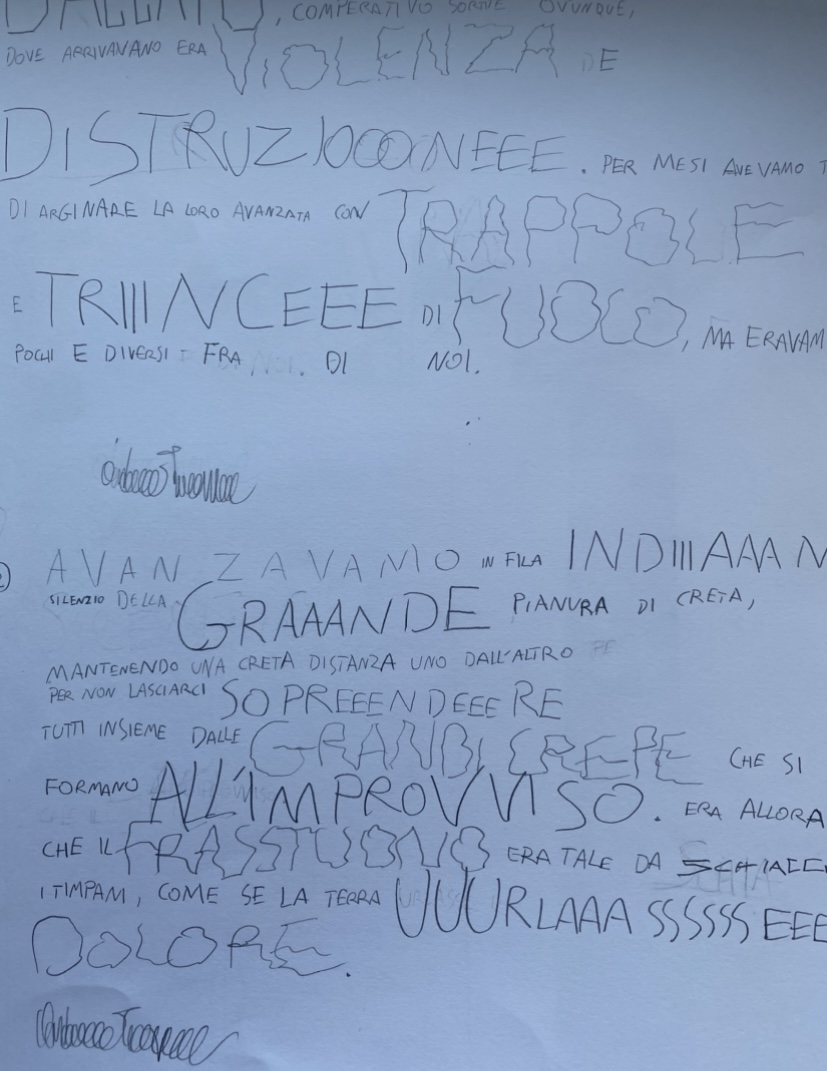 , COMPERATIVO SORTIVE OVUNQUE,
DOVE ARRIVAVANO ERA VIOLENZA DE
DISTRUZIOOOONEEE. PER MESI AVEVAMO T
DI ARGINARE LA LORO AVANZATA CON TRAPPOLE
E TRIIINCEEE DI FUOCO, MA ERAVAM
POCHI E DIVERSI FRA DI NOI.
AVANZAVAMO IN FILA INDIIIAAAN
SILENZIO DELLA GRAAANDE PIANURA DI CRETA,
MANTENENDO UNA CRETA DISTANZA UNO DALL'ALTRO
PER NON LASCIARCI SOPREEENDEEERE
TUTTI INSIEME DALLE GRANDI CREPE CHE SI
FORMANO ALL'IMPROVVISO. ERA ALLORA
CHE IL FRASSTUONO ERA TALE DA SCHIACC
I TIMPAM, COME SE LA TERRA UUUURLAAASSSSSSEEE
DOLORE.